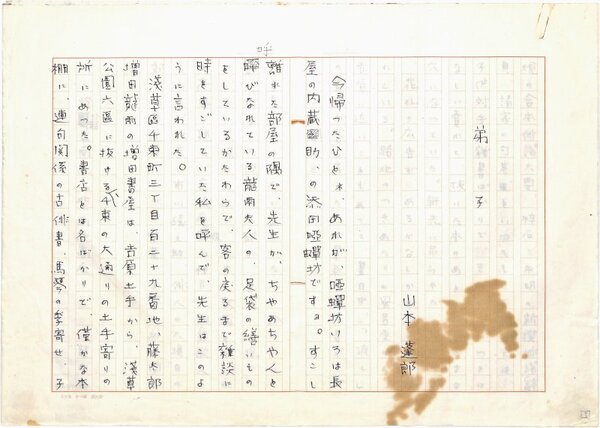 弟子
山本蓬郎
今帰つたひとネ、あれが、唖蝉坊いろは長
屋の内蔵助、の添田唖蝉坊ですョ。すこし
離れた部屋の隅で、先生が、ちやあちやんと
呼びなれている龍雨夫人の、足袋の繕いもの
をしているかたわらで、客の戻るまで雑談に
時をすごしていた私を呼んで、先生はこのよ
うに言われた。
浅草区千束町三丁目百三十九番地、藤太郎
増田龍雨の増田書屋は、吉原土手から、浅草
公園六區に抜ける千束の大通りの土手寄りの
所にあつた。書店とは名ばかりで、僅かな本
棚に、連句関係の古俳書、馬琴の季寄せ、子
呼